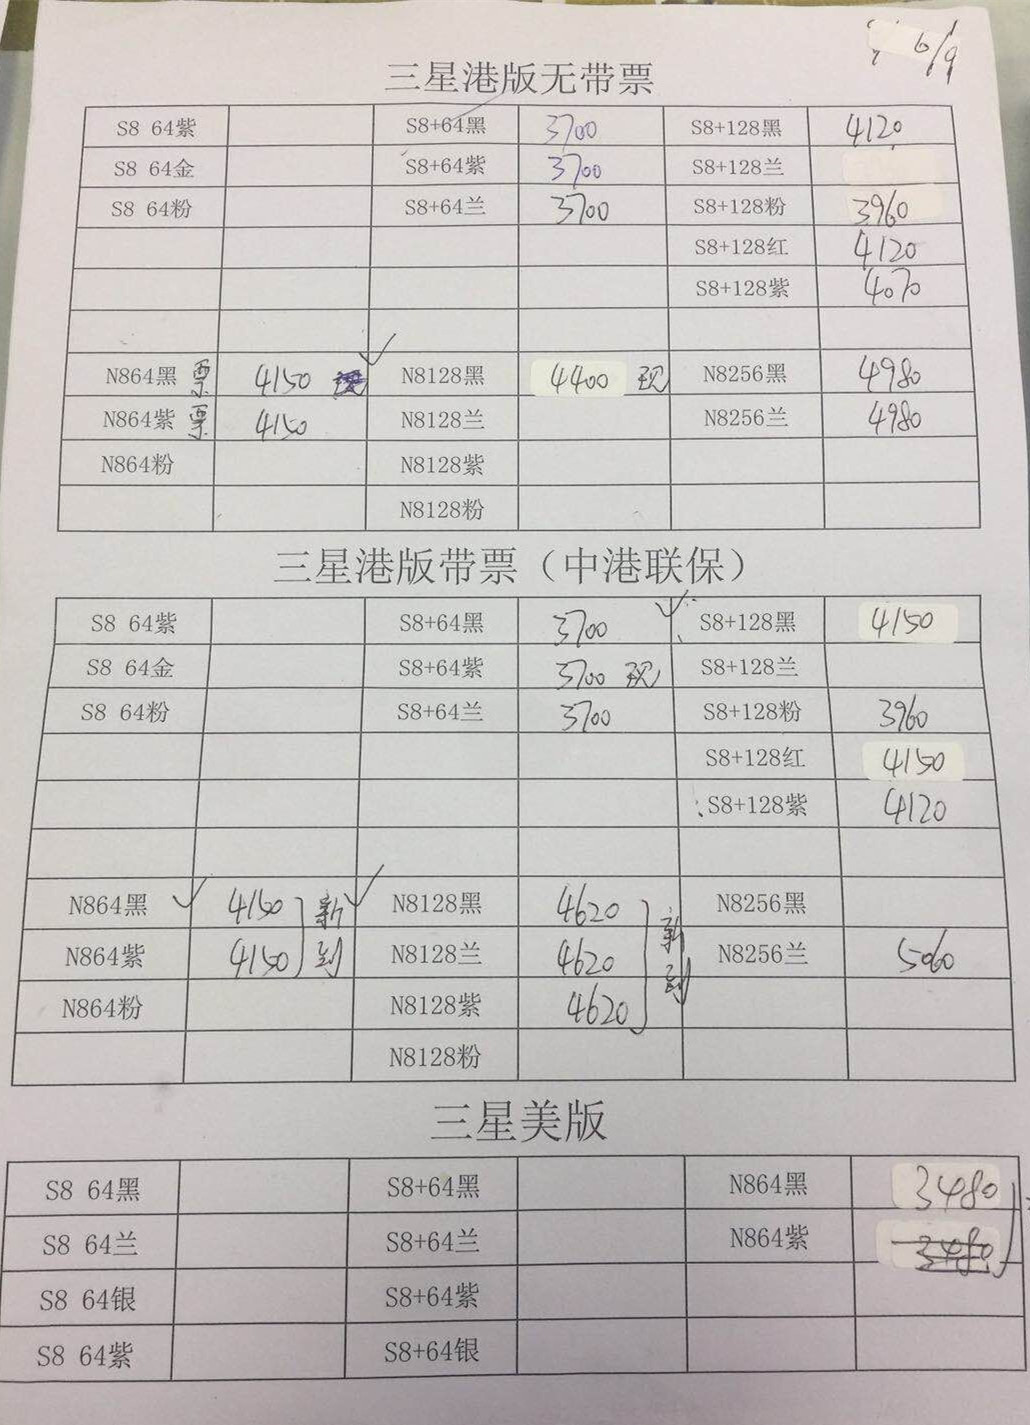 6/9
三星港版无带票
S8 64紫 S8+64黑 3700 S8+128黑 4120
S8 64金 S8+64紫 3700 S8+128兰
S8 64粉 S8+64兰 3700 S8+128粉 3960
S8+128红 4120
S8+128紫 4070
N864黑 票 4150 N8128黑 4400 现 N8256黑 4980
N864紫 票 4150 N8128兰 N8256兰 4980
N864粉 N8128紫
N8128粉
三星港版带票（中港联保）
S8 64紫 S8+64黑 3700 S8+128黑 4150
S8 64金 S8+64紫 3700 现 S8+128兰
S8 64粉 S8+64兰 3700 S8+128粉 3960
S8+128红 4150
S8+128紫 4120
N864黑 4150 新到 N8128黑 4620 新到 N8256黑
N864紫 4150 N8128兰 4620 N8256兰 5060
N864粉 N8128紫 4620
N8128粉
三星美版
S8 64黑 S8+64黑 N864黑 3480
S8 64兰 S8+64兰 N864紫 3480
S8 64银 S8+64紫
S8 64紫 S8+64银